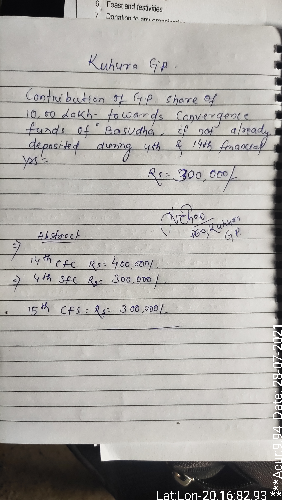 6 Feast and festivities
7 Donation to any
Kuhura G.P.
Contribution of G.P. share of
10.00 Lakh- towards Convergence
funds of Basudha, if not already
deposited during 4th & 14th financial
Rs= 300,000/-
Kuhura
G.P.
Abstract
14th CFC Rs= 400,000/-
4th SFC Rs= 300,000/-
15th CFC: Rs= 300,000/-
Lat Lon-20.16:82.93
***Acur 9.94 Date:28-07-2021